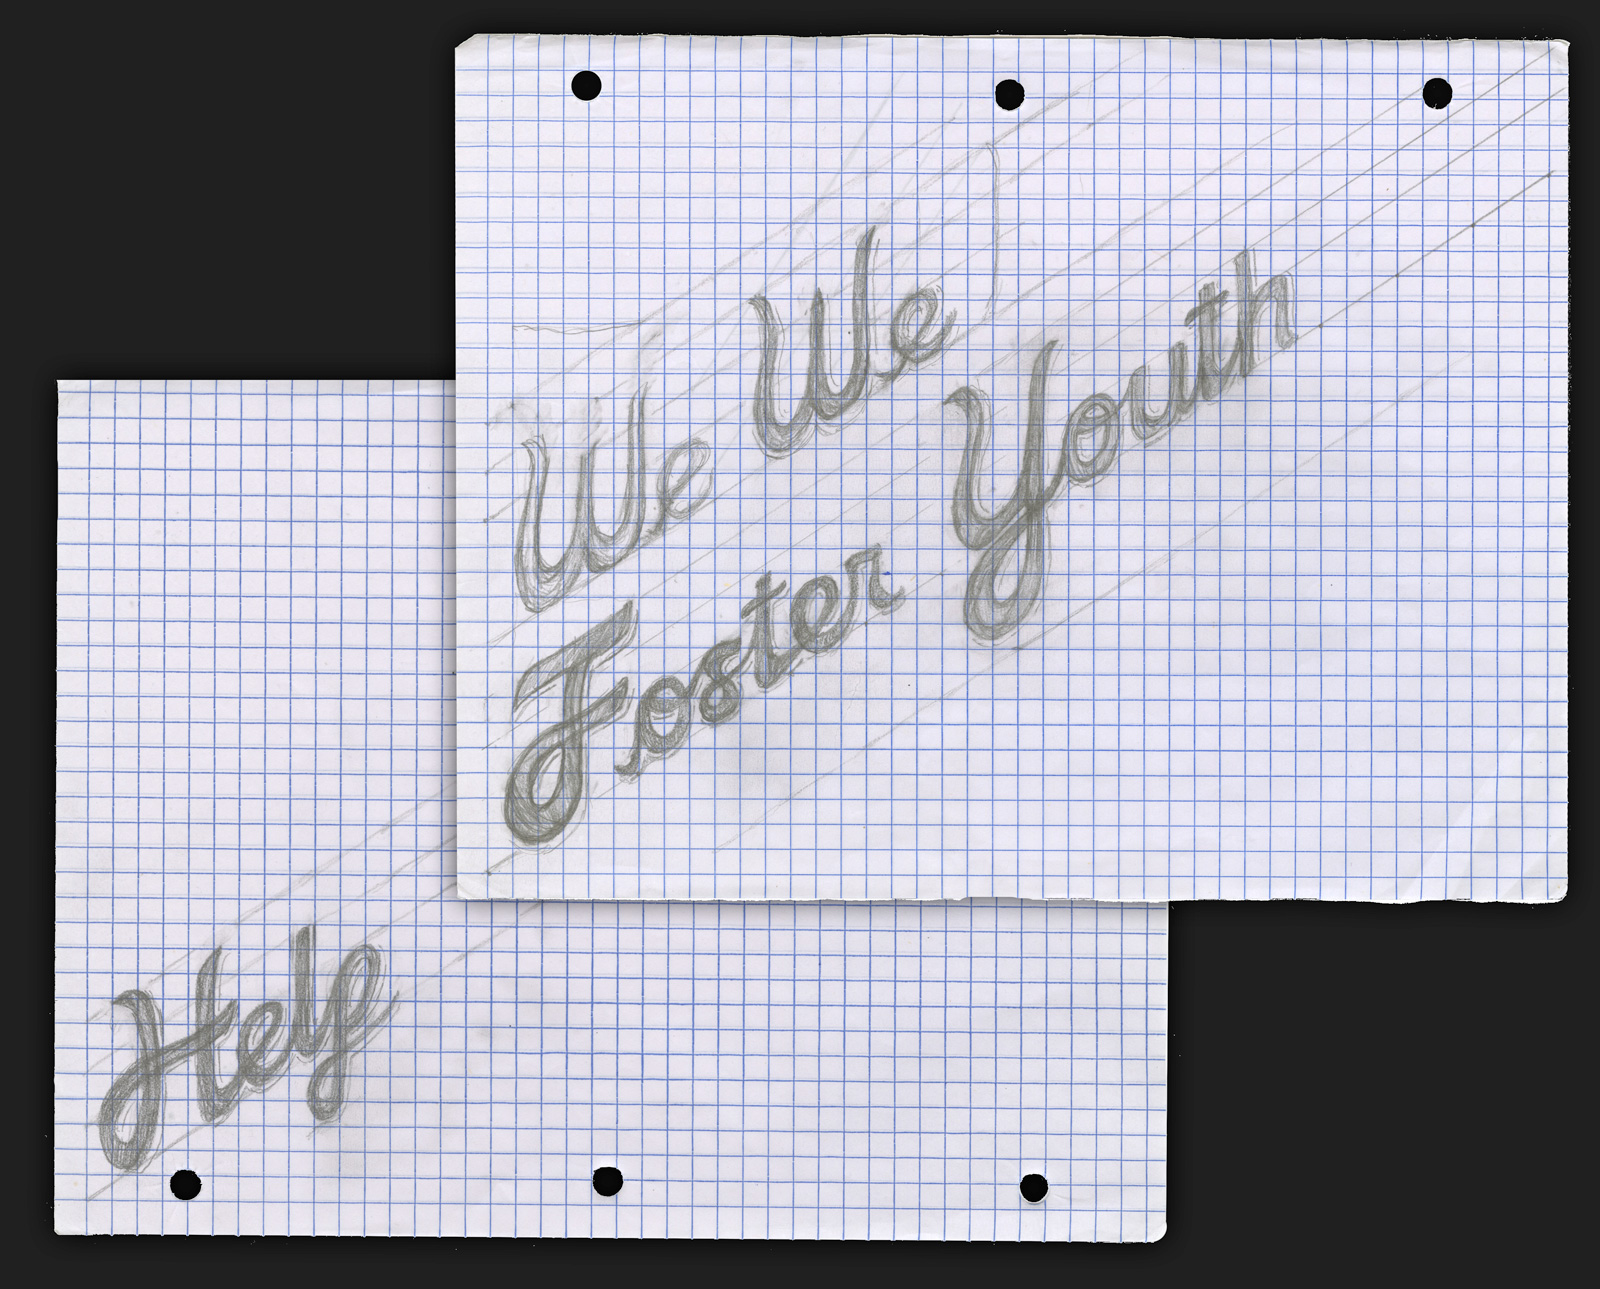 We We
Foster Youth
Help